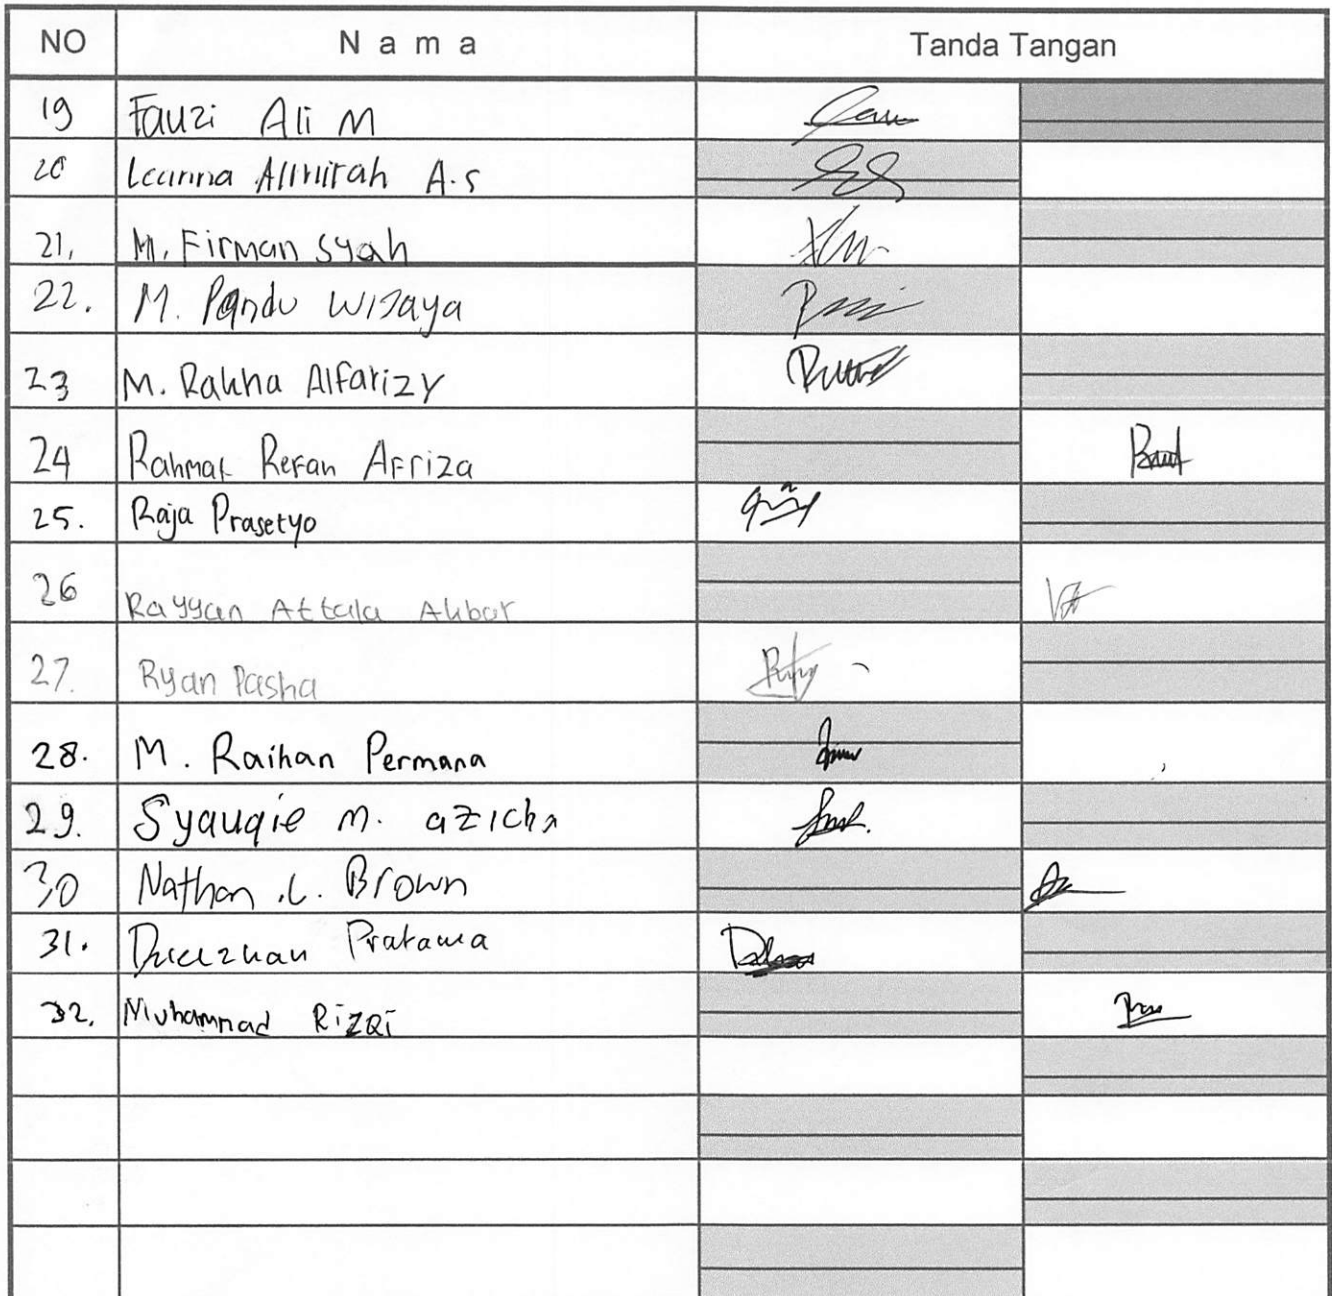 NO N a m a Tanda Tangan
19 Fauzi Ali M
20 Leanna Almirah A.S
21. M. Firman syah
22. M. Pandu WiJaya
23 M. Rakha Alfarizy
24 Rahmat Refan Afriza
25. Raja Prasetyo
26 Rayyan Attala Akbar
27. Ryan Pasha
28. M. Raihan Permana
29. Syauqie M. azicha
30 Nathan .L. Brown
31. Pratama
32. Muhammad RiZQi